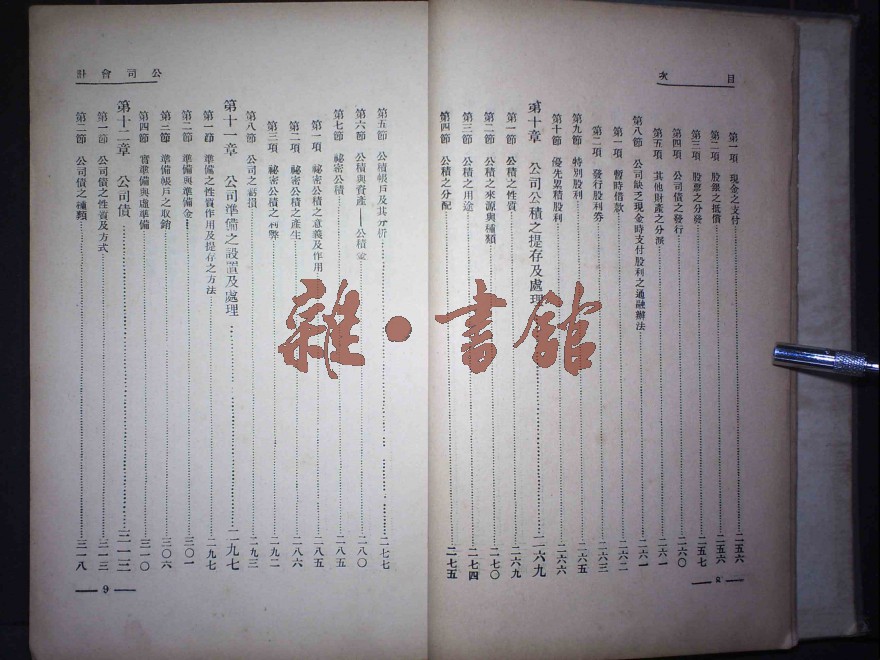 目次
第一項 現金之支付 二五六
第二項 股銀之抵償 二五六
第三項 股票之分發 二五七
第四項 公司債之發行 二六〇
第五項 其他財產之分派 二六一
第八節 公司缺乏現金時支付股利之通融辦法 二六一
第一項 暫時借款 二六二
第二項 發行股利券 二六三
第九節 特別股利 二六五
第十節 優先累積股利 二六六
第十章 公司公積之提存及處理 二六九
第一節 公積之性質 二六九
第二節 公積之來源與種類 二七〇
第三節 公積之用途 二七四
第四節 公積之分配 二七五
8
公司會計
第五節 公積帳戶及其分析 二七七
第六節 公積與資產——公積金 二八〇
第七節 祕密公積 二八五
第一項 祕密公積之意義及作用 二八五
第二項 祕密公積之產生 二八六
第三項 祕密公積之利弊 二九二
第八節 公司之虧損 二九三
第十一章 公司準備之設置及處理 二九七
第一節 準備之性質作用及提存之方法 二九七
第二節 準備與準備金 三〇一
第三節 準備帳戶之取銷 三〇六
第四節 實準備與虛準備 三一〇
第十二章 公司債 三一三
第一節 公司債之性質及方式 三一三
第二節 公司債之種類 三一八
9
雜·書館